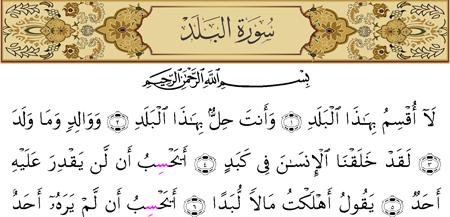 سُورَةُ البَلَد
بِسْمِ اللَّهِ الرَّحْمَٰنِ الرَّحِيمِ
لَآ أُقْسِمُ بِهَٰذَا ٱلْبَلَدِ ۝١ وَأَنتَ حِلٌّۢ بِهَٰذَا ٱلْبَلَدِ ۝٢ وَوَالِدٍ وَمَا وَلَدَ
۝٣ لَقَدْ خَلَقْنَا ٱلْإِنسَٰنَ فِى كَبَدٍ ۝٤ أَيَحْسِبُ أَن لَّن يَقْدِرَ عَلَيْهِ
أَحَدٌ ۝٥ يَقُولُ أَهْلَكْتُ مَالاً لُّبَدًا ۝٦ أَيَحْسِبُ أَن لَّمْ يَرَهُۥٓ أَحَدٌ